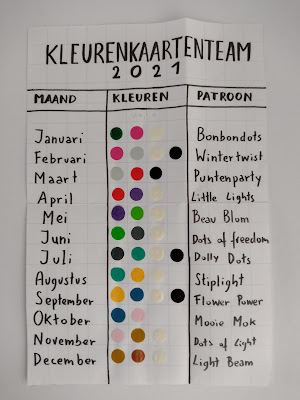 KLEURENKAARTENTEAM
2021
MAAND KLEUREN PATROON
Januari Bonbondots
Februari Wintertwist
Maart Puntenparty
April Little Lights
Mei Beau Blum
Juni Dots of freedom
Juli Dolly Dots
Augustus Stiplight
September Flower Power
Oktober Mooie Mok
November Dots of Light
December Light Beam